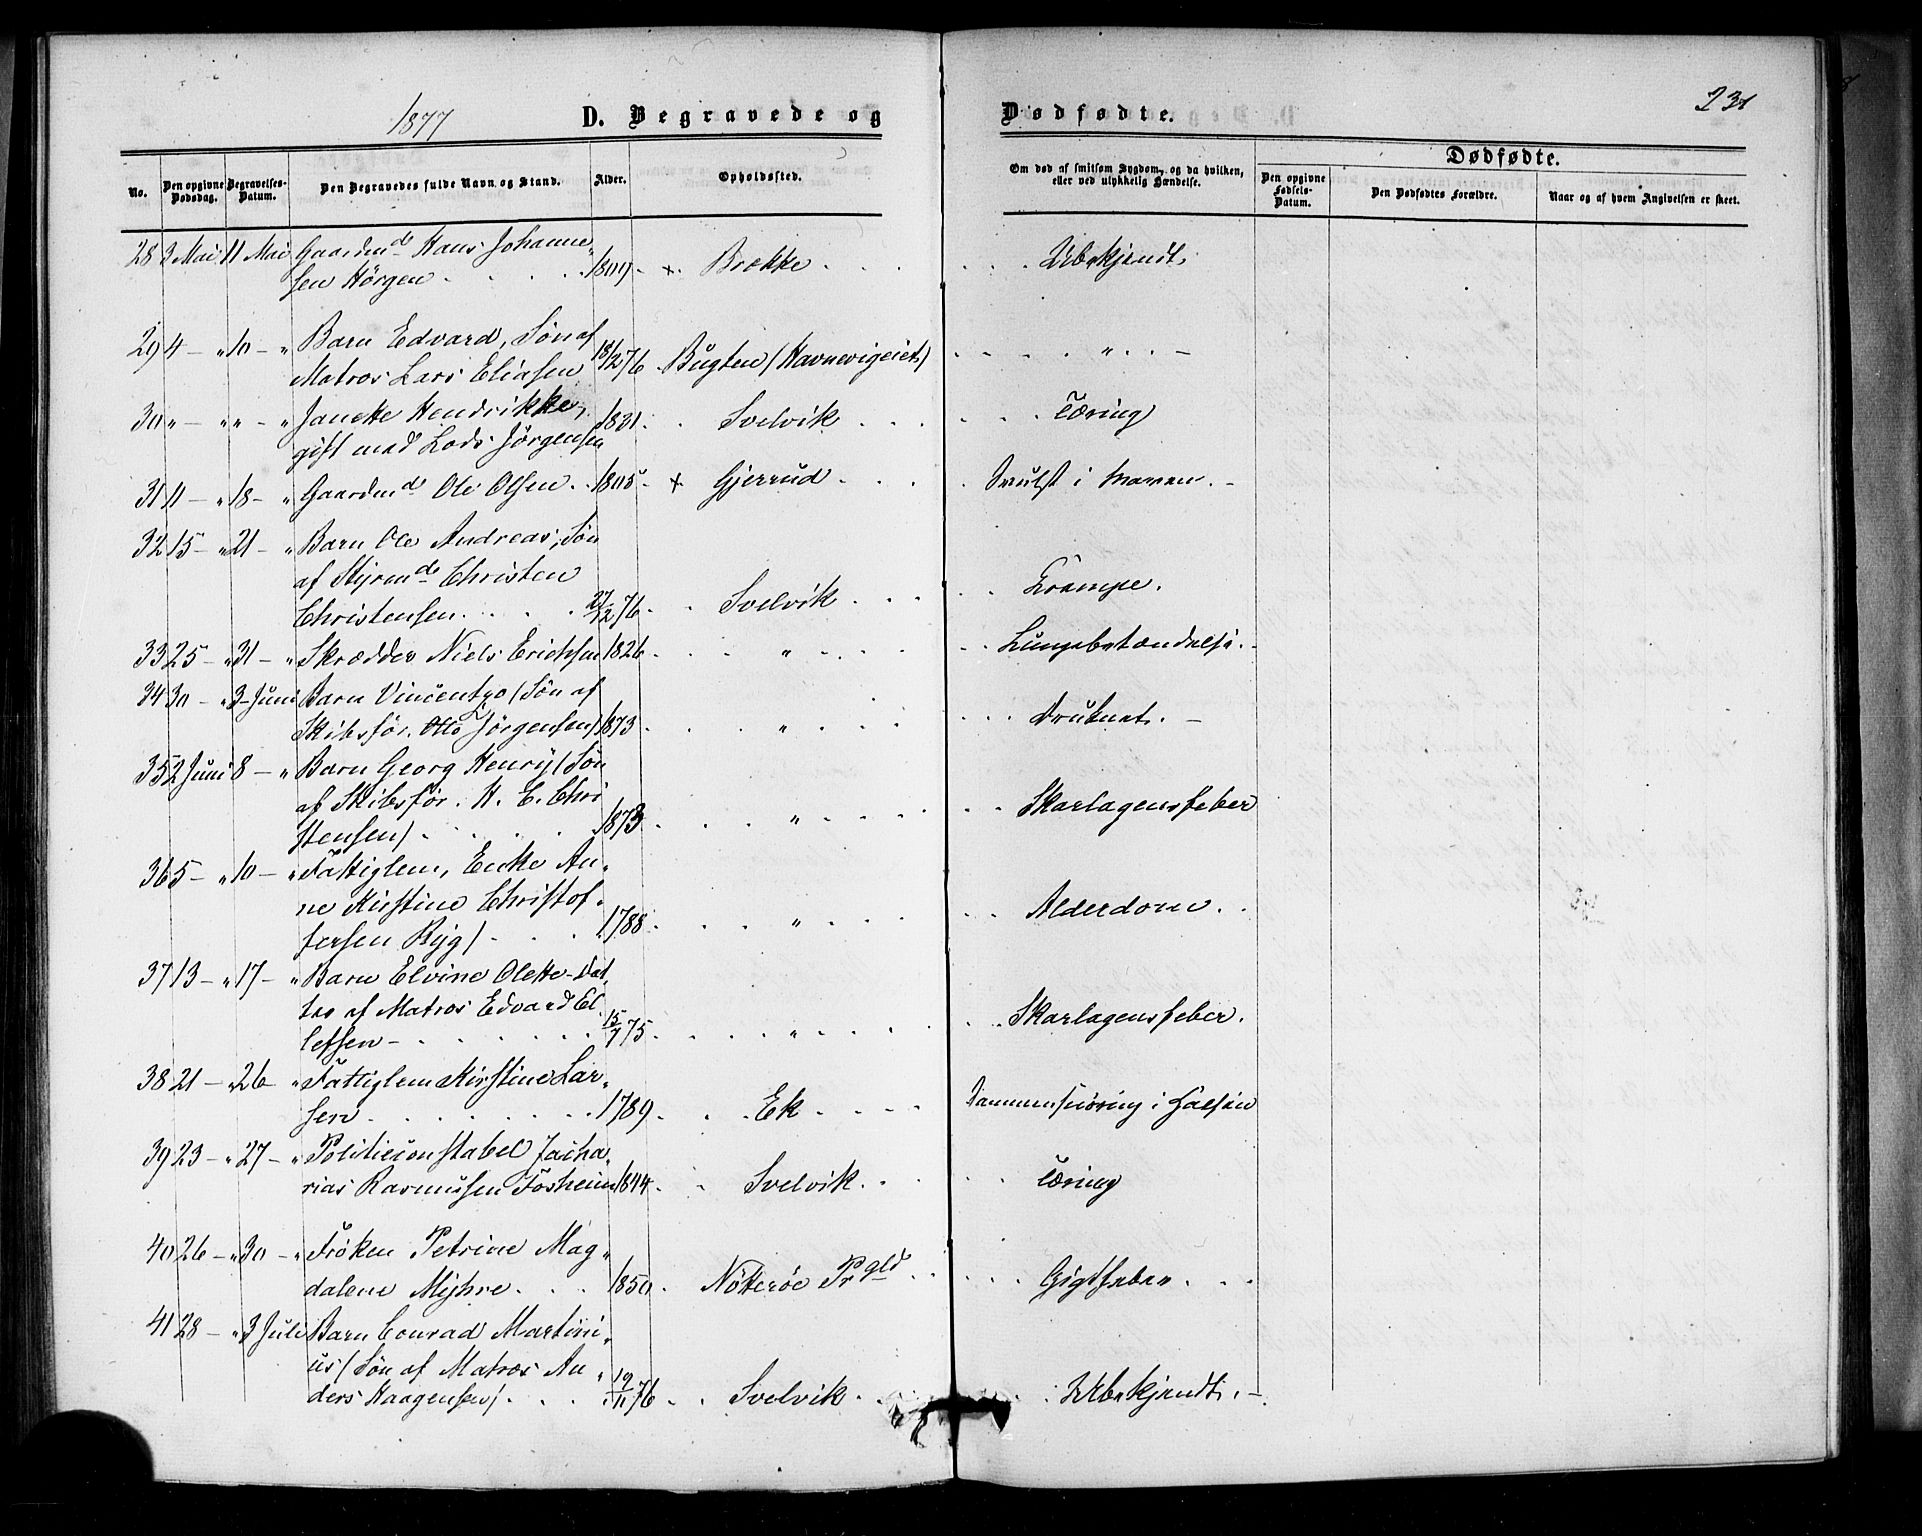 1877 D. Begravede og Dødfødte. 231
No. Den opgivne Dødsdag. Begravelses-Datum. Den Begravedes fulde Navn og Stand. Alder. Opholdssted. Om død af smitsom Sygdom, og da hvilken, eller ved ulykkelig Hændelse. Dødfødte. Den opgivne Fødsels-Datum. Den Dødfødtes Forældre. Naar og af hvem Angivelsen er skeet.
28 3 Mai 11 Mai Gaardmd Hans Johanne-
sen Hörgen . . . . 1809. + Brække . . . . . Ubekjendt.
29 4 – " 10 – " Barn Edvard, Søn af
Matros Lars Eliasen 18/2 76 Bugten (Havnevigeiet) . . . " . . –
30 " – " " – " Janette Hendrikke,
gift med Lods Jörgensen 1831 . . Svelvik . . . . . Tæring
31 11 – " 18 – " Gaardmd Ole Olsen . . 1805 – + Gjerrud . . . . . Svulst i Maven. –
32 15 – " 21 – " Barn Ole Andreas, Søn
af Styrmd Christen
Christensen . . . . 27/12 76 . . Svelvik . . . . . Krampe.
33 25 – " 31 – " Skrædder Niels Erichsen 1826 . . . " . . . . . Lungebetændelse. –
34 30 – " 3 Juni Barn Vincent (Søn af
Skibsför. Otto Jörgensen) 1873 . . . " . . . . . Druknet. –
35 2 Juni 8 – " Barn Georg Henry (Søn
af Skibsför. H. E. Chri
stensen) . . . . . 1873 . . . " . . . . . Skarlagensfeber
36 5 – " 10 – " Fattiglem, Enke An-
ne Kirstine Christof-
fersen Ryg) . . . . 1788 . . . " . . . . . Alderdom. .
37 13 – " 17 – " Barn Elvine Olette – Dat-
ter af Matros Edvard El
lefsen – . . . . . 15/7 75 . . . " . . . . . Skarlagensfeber.
38 21 – " 26 – " Fattiglem Kirstine Lar-
sen . . . . . . 1789 . . . Ek . . . . Sammensnöring i Halsen
39 23 – " 27 – " Politieconstabel Zacha-
rias Rasmussen Fosheim 1844 . . Svelvik . . . . . Tæring
40 26 – " 30 – " Fröken Petrine Mag-
dalene Myhre . . . 1850 . Nötterøe Prgld . . . . . Gigtfeber . . .
41 28 – " 3 Juli Barn Conrad Martini-
us (Søn af Matros An-
ders Haagensen) . . . 19/11 76 . . Svelvik . . . . . Ubekjendt. –